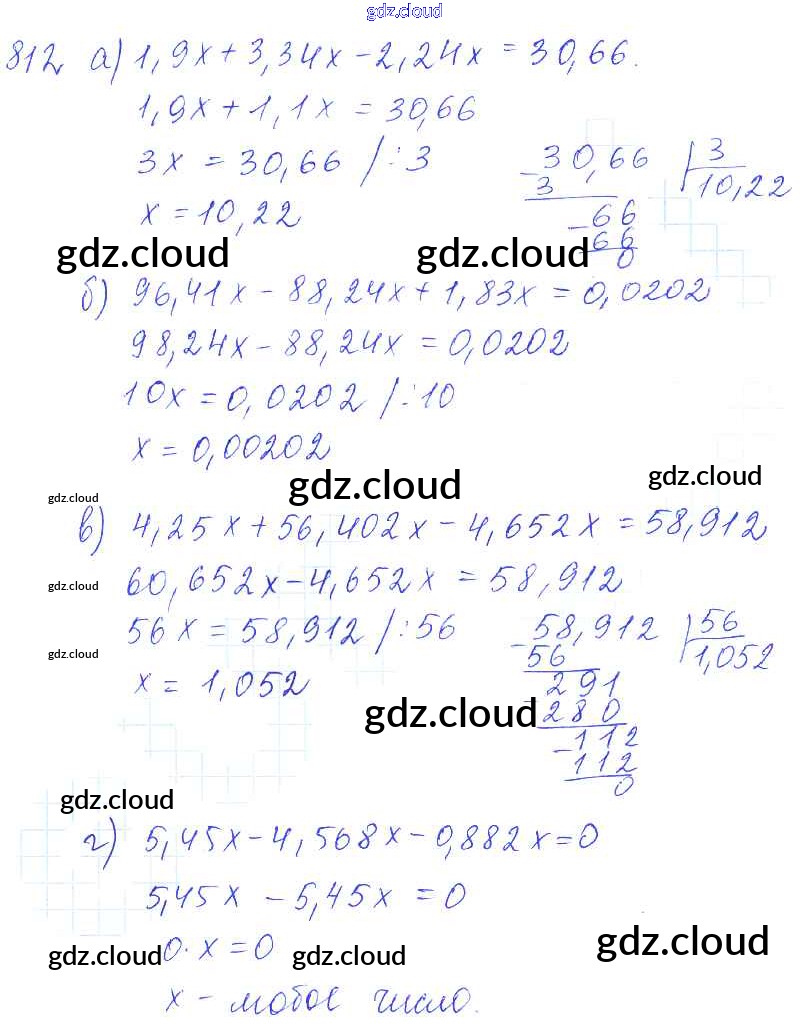 gdz.cloud
812 а) 1,9x + 3,34x - 2,24x = 30,66.
1,9x + 1,1x = 30,66
3x = 30,66 /:3
30,66 | 3
- 3
10,22
x = 10,22
- 66
66
0
gdz.cloud gdz.cloud
б) 96,41x - 88,24x + 1,83x = 0,0202
98,24x - 88,24x = 0,0202
10x = 0,0202 /:10
x = 0,00202
gdz.cloud gdz.cloud
gdz.cloud
в) 4,25x + 56,402x - 4,652x = 58,912
gdz.cloud
60,652x - 4,652x = 58,912
56x = 58,912 /:56
58,912 | 56
- 56
1,052
gdz.cloud
x = 1,052
291
- 280
gdz.cloud
- 112
112
0
gdz.cloud
г) 5,45x - 4,568x - 0,882x = 0
5,45x - 5,45x = 0
0·x = 0
gdz.cloud gdz.cloud gdz.cloud
x - любое число.